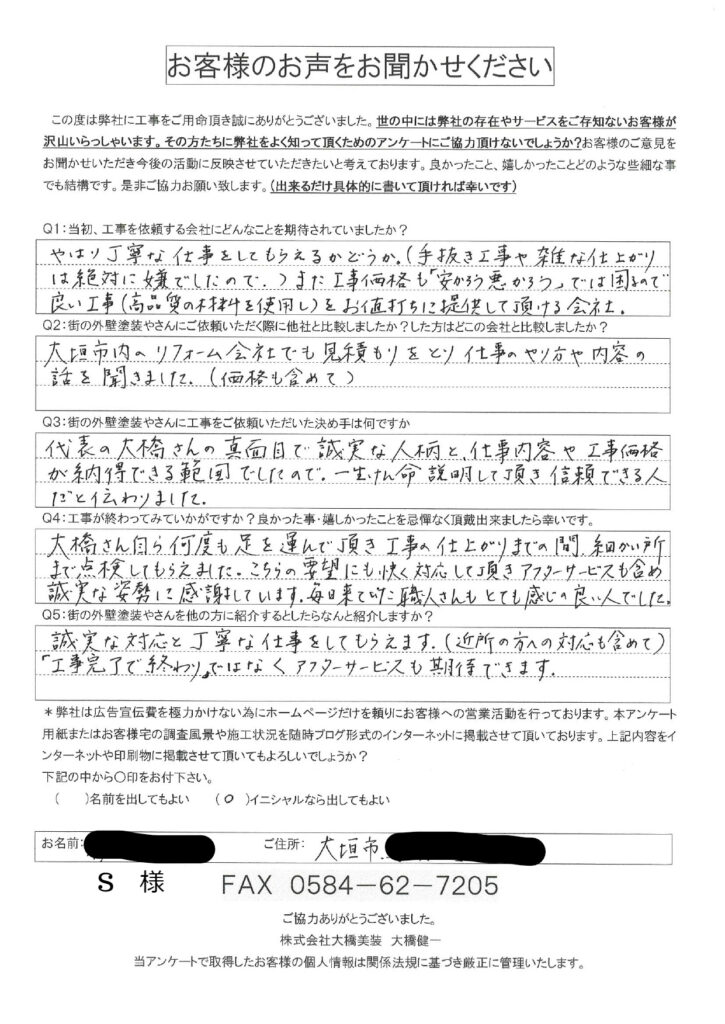 お客様のお声をお聞かせください
この度は弊社に工事をご用命頂き誠にありがとうございました。世の中には弊社の存在やサービスをご存知ないお客様が
沢山いらっしゃいます。その方たちに弊社をよく知って頂くためのアンケートにご協力頂けないでしょうか？お客様のご意見を
お聞かせいただき今後の活動に反映させていただきたいと考えております。良かったこと、嬉しかったことどのような些細な事
でも結構です。是非ご協力お願い致します。（出来るだけ具体的に書いて頂ければ幸いです）
Q1：当初、工事を依頼する会社にどんなことを期待されていましたか？
やはり丁寧な仕事をしてもらえるかどうか。（手抜き工事や雑な仕上がり
は絶対に嫌でしたので。）また工事価格も「安かろう悪かろう」では困るので
良い工事（高品質の材料を使用し）をお値打ちに提供して頂ける会社。
Q2：街の外壁塗装やさんにご依頼いただく際に他社と比較しましたか？した方はどこの会社と比較しましたか？
大垣市内のリフォーム会社でも見積もりをとり仕事のやり方や内容の
話を聞きました。（価格も含めて）
Q3：街の外壁塗装やさんに工事をご依頼いただいた決め手は何ですか
代表の大橋さんの真面目で誠実な人柄と、仕事内容や工事価格
が納得できる範囲でしたので。一生けん命説明して頂き信頼できる人
だと伝わりました。
Q4：工事が終わってみていかがですか？良かった事・嬉しかったことを忌憚なく頂戴出来ましたら幸いです。
大橋さん自ら何度も足を運んで頂き工事の仕上がりまでの間、細かい所
まで点検してもらえました。こちらの要望にも快く対応して頂きアフターサービスも含め
誠実な姿勢に感謝しています。毎日来ていた職人さんもとても感じの良い人でした。
Q5：街の外壁塗装やさんを他の方に紹介するとしたらなんと紹介しますか？
誠実な対応と丁寧な仕事をしてもらえます。（近所の方への対応も含めて）
「工事完了で終わり」ではなくアフターサービスも期待できます。
＊弊社は広告宣伝費を極力かけない為にホームページだけを頼りにお客様への営業活動を行っております。本アンケート
用紙またはお客様宅の調査風景や施工状況を随時ブログ形式のインターネットに掲載させて頂いております。上記内容をイ
ンターネットや印刷物に掲載させて頂いてもよろしいでしょうか？
下記の中から〇印をお付下さい。
（　　）名前を出してもよい　　（○）イニシャルなら出してもよい
お名前：　　ご住所：　大垣市
S 様　FAX 0584－62－7205
ご協力ありがとうございました。
株式会社大橋美装　大橋健一
当アンケートで取得したお客様の個人情報は関係法規に基づき厳正に管理いたします。